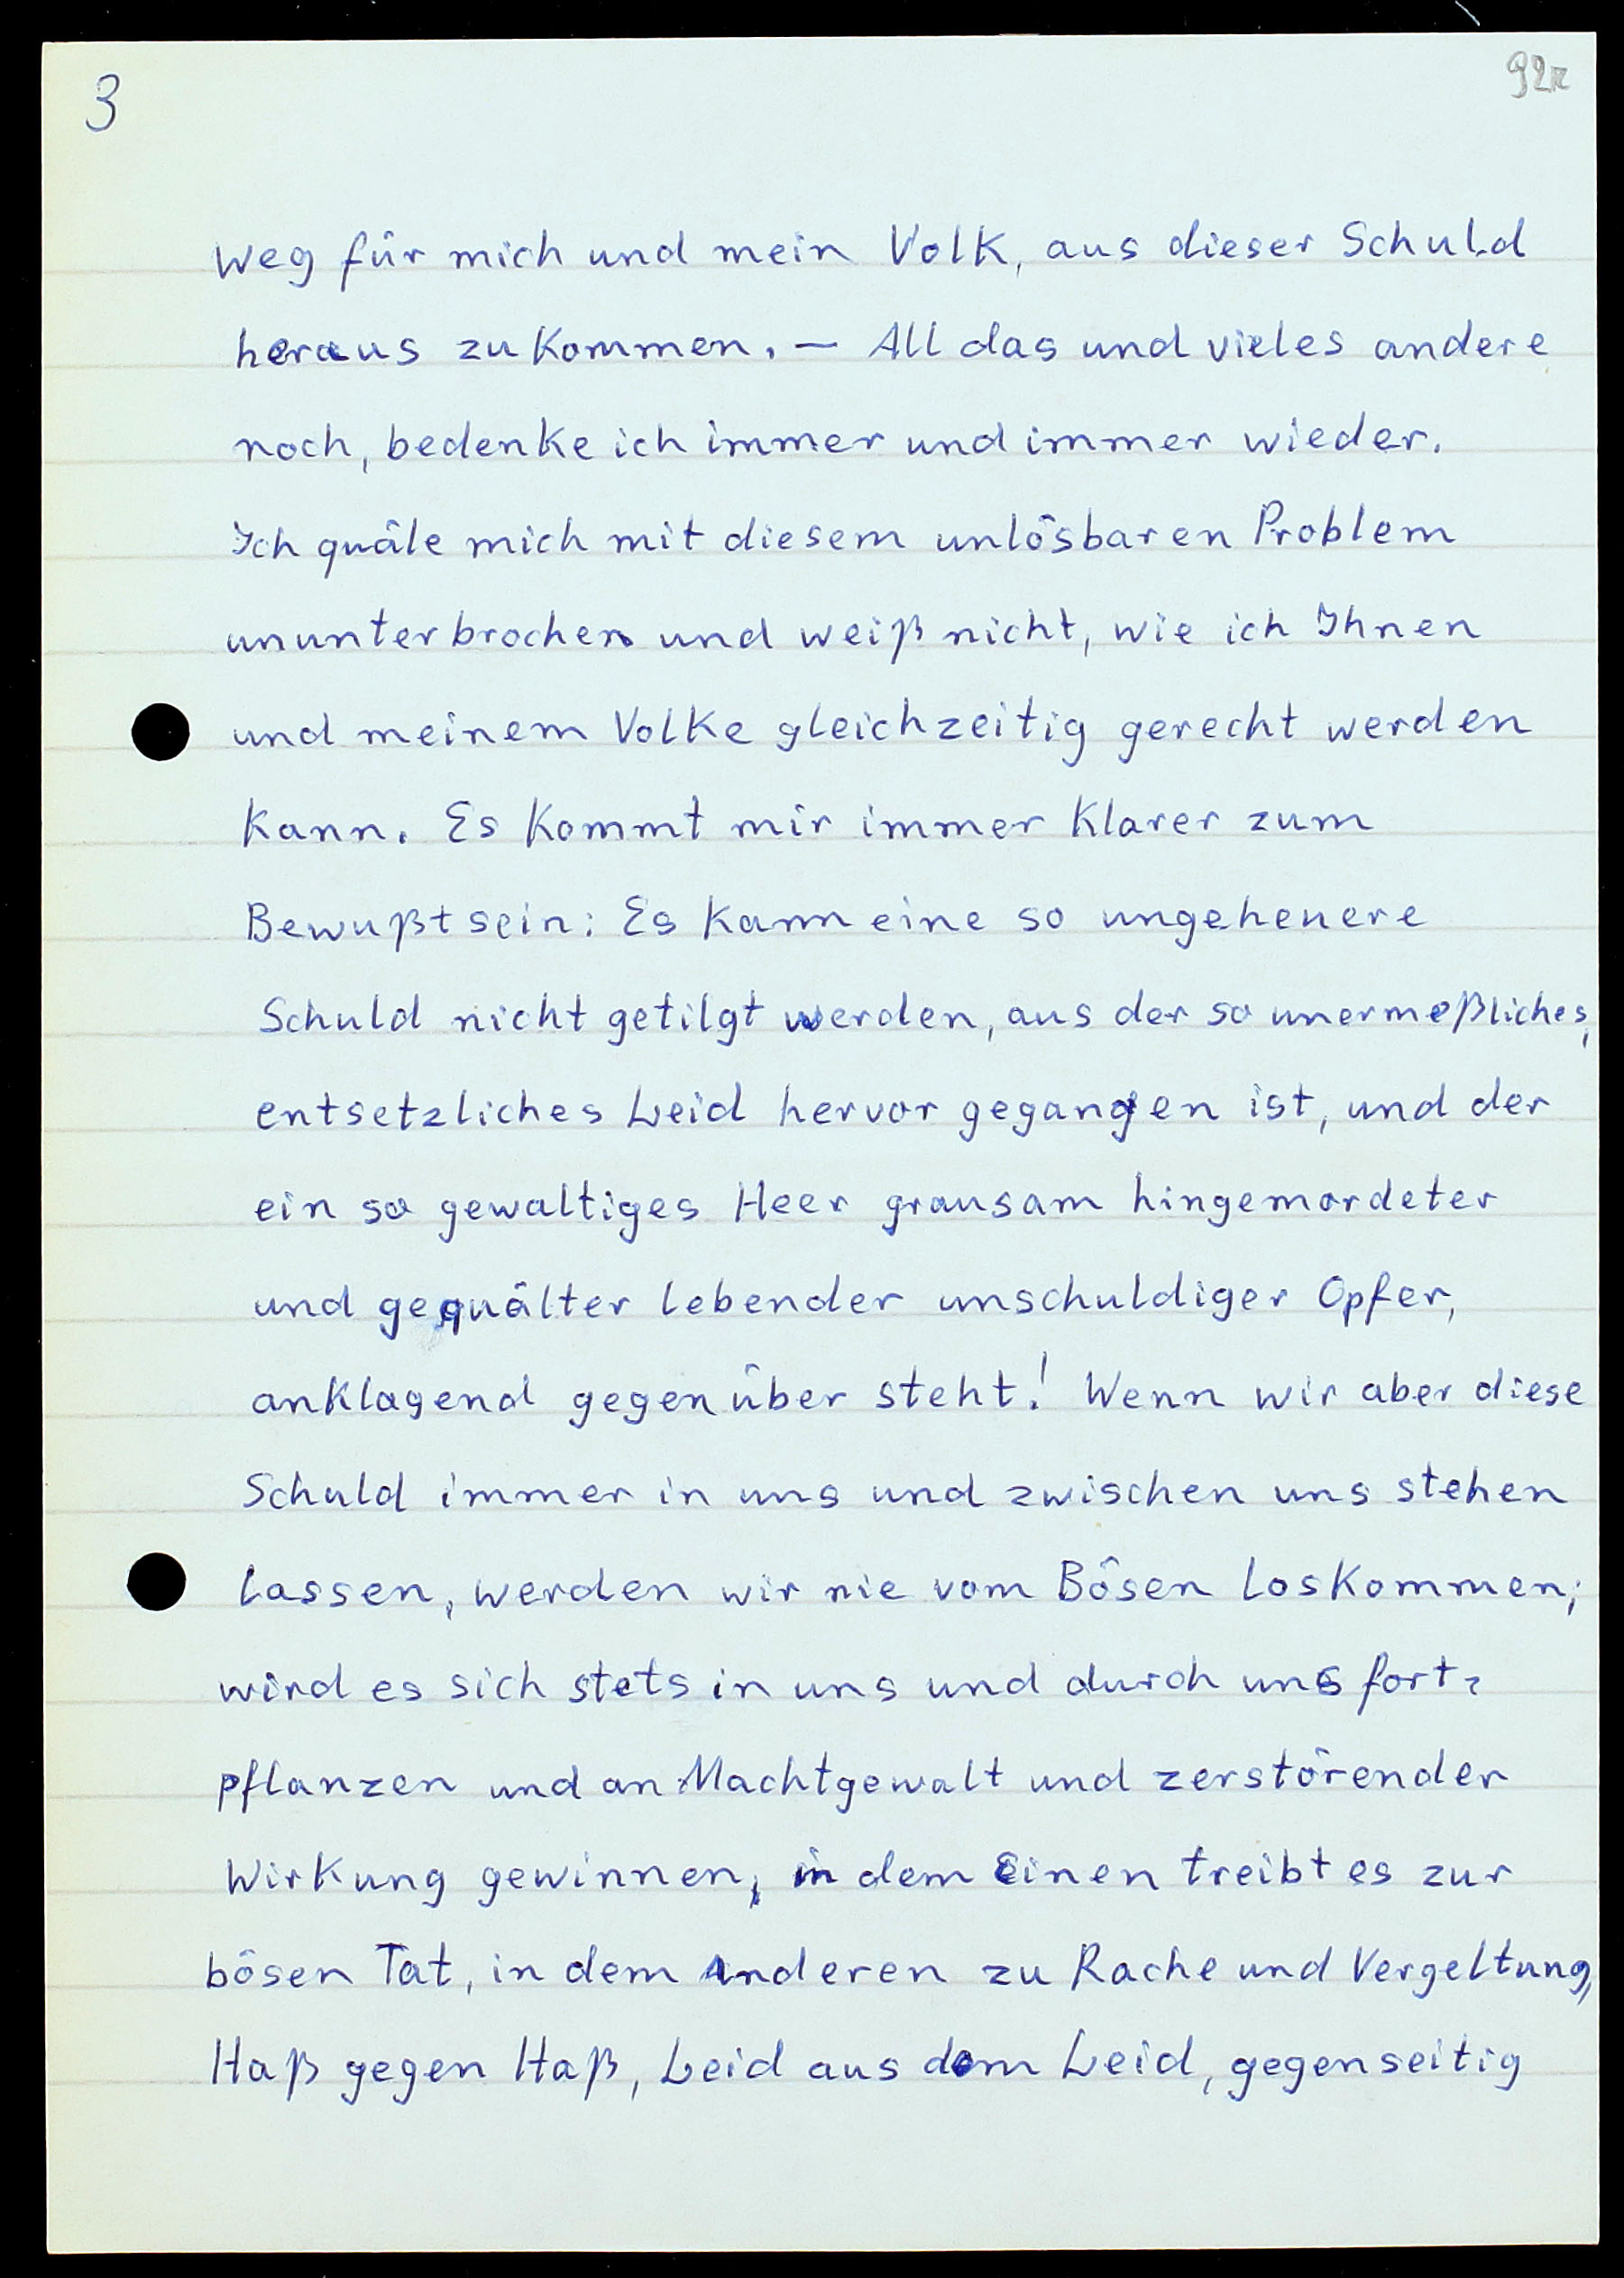 3
92r
Weg für mich und mein Volk, aus dieser Schuld
heraus zu kommen. — All das und vieles andere
noch, bedenke ich immer und immer wieder.
Ich quäle mich mit diesem unlösbaren Problem
ununterbrochen und weiß nicht, wie ich Ihnen
und meinem Volke gleichzeitig gerecht werden
kann. Es kommt mir immer klarer zum
Bewußtsein: Es kann eine so ungeheuere
Schuld nicht getilgt werden, aus der so unermeßliches,
entsetzliches Leid hervor gegangen ist, und der
ein so gewaltiges Heer grausam hingemordeter
und gequälter lebender unschuldiger Opfer,
anklagend gegenüber steht! Wenn wir aber diese
Schuld immer in uns und zwischen uns stehen
lassen, werden wir nie vom Bösen loskommen;
wird es sich stets in uns und durch uns fort-
pflanzen und an Machtgewalt und zerstörender
Wirkung gewinnen, in dem Einen treibt es zur
bösen Tat, in dem Anderen zu Rache und Vergeltung,
Haß gegen Haß, Leid aus dem Leid, gegenseitig